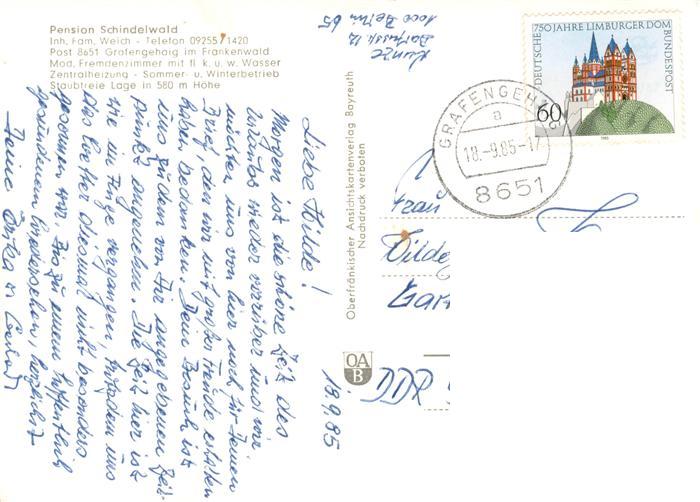 Pension Schindelwald
Inh. Fam. Weich - Telefon 09255/1420
Post 8651 Grafengehaig im Frankenwald
Mod. Fremdenzimmer mit fl. k. u. w. Wasser
Zentralheizung - Sommer- u. Winterbetrieb
Staubfreie Lage in 580 m Höhe
Kunze
1000 Berlin 65
750 JAHRE LIMBURGER DOM
DEUTSCHE BUNDESPOST
60
1985
GRAFENGEHAIG
a
18.-9.85-17
8651
18.9.85
Liebe Hilde!
Morgen ist die schöne Zeit des
Urlaubs wieder vorüber und wir
möchten uns von hier noch für Deinen
Brief, den wir mit großer Freude erhalten
haben bedanken. Dein Besuch ist
uns zu dem von Dir angegebenen Zeit-
punkt angenehm. Die Zeit hier ist
wie im Fluge vergangen, trotzdem uns
das Wetter diesmal nicht besonders
gesonnen war. Bis zu einem hoffentlich
gesunden Wiedersehen, herzlichst
Deine
Oberfränkischer Ansichtskartenverlag Bayreuth
Nachdruck verboten
OA
B
Frau
Hildeg
Gar
DDR